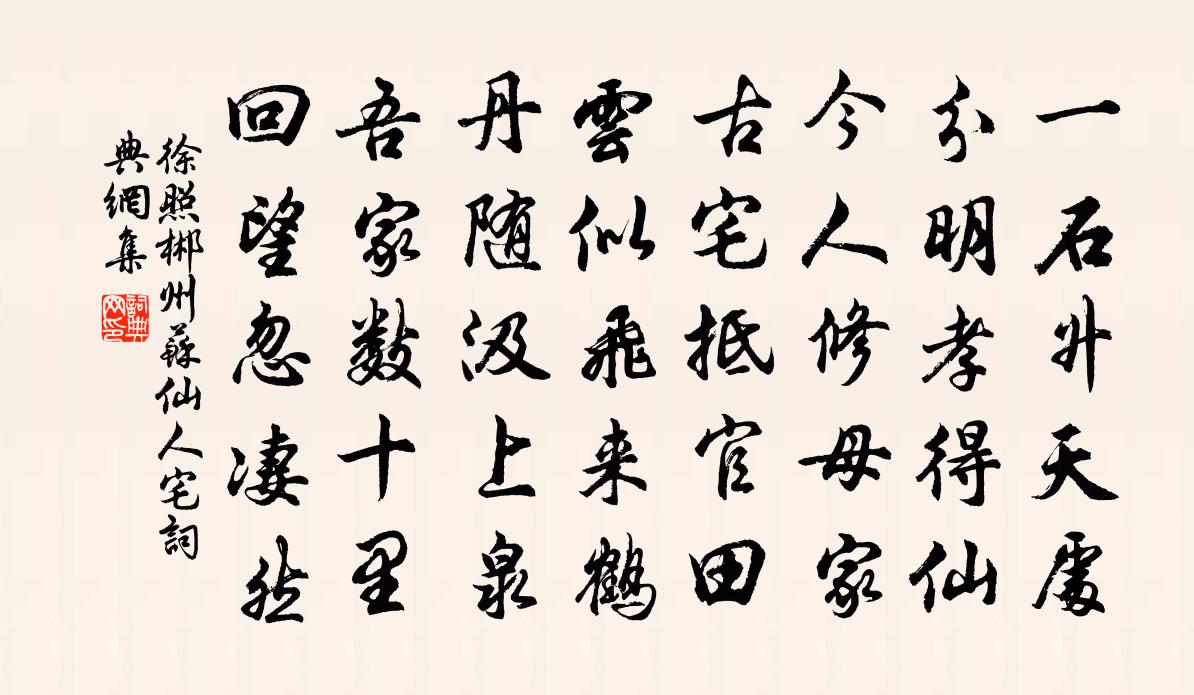 一石升天處
分明孝得仙
今人修母家
古宅抵官田
雲似飛来鶴
丹随汲上泉
吾家数十里
回望忽凄然
徐照郴州蘇仙人宅詞
典網集
詞典
网印